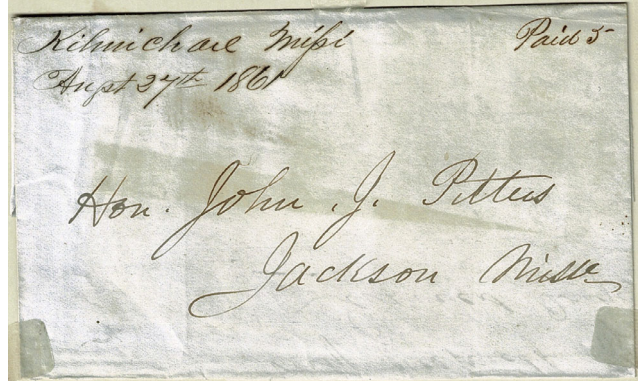 Kilmichael Missi Paid 5
Augst 27th 1861
Hon. John J. Pettus
Jackson Missi